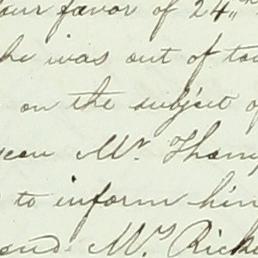 our favor of 24th
he was out of to
on the subject of
een Mr. Thom
to inform him
and Mr. Rick